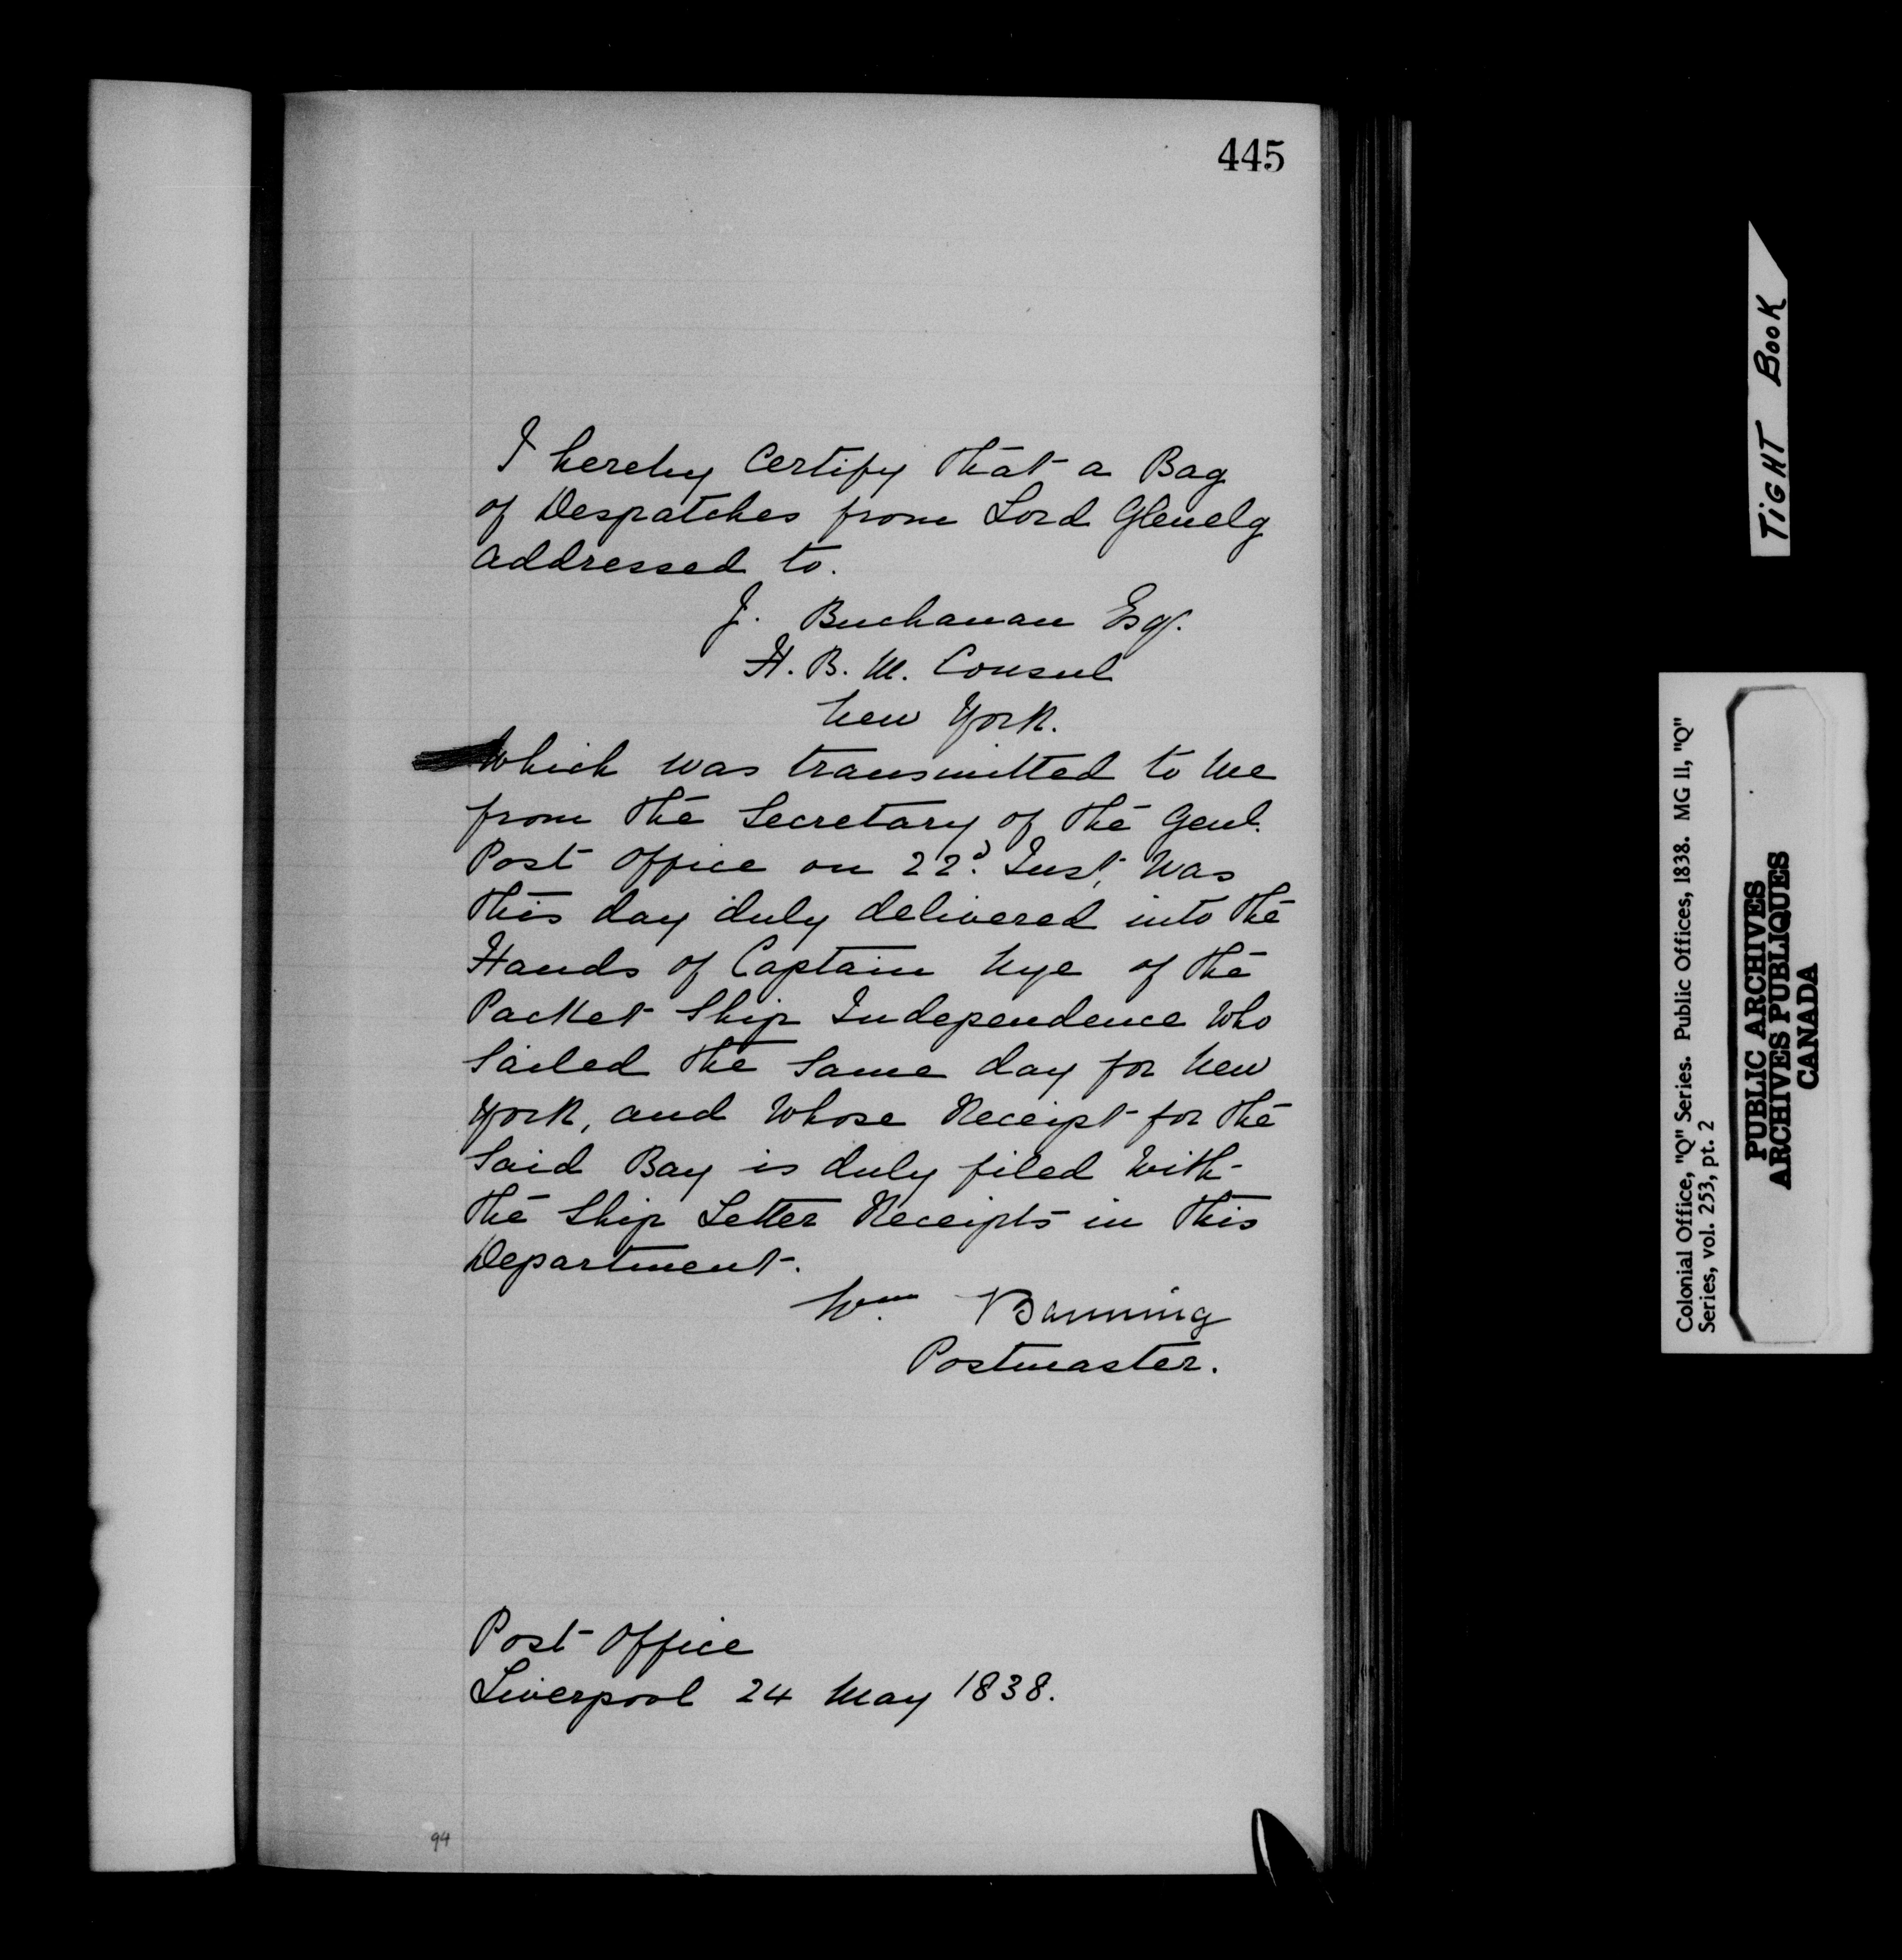 445
I hereby Certify that a Bag
of Despatches from Lord Glenelg
addressed to.
J. Buchanan Esqr.
H. B. M. Consul
New York.
Which was transmitted to me
from the Secretary of the Genl.
Post Office on 22d. Inst, Was
this day duly delivered into the
Hands of Captain Nye of the
Packet Ship Independence Who
Sailed the Same day for New
York, and Whose Receipt for the
Said Bag is duly filed With
the Ship Letter Receipts in this
Department.
Wm. Banning
Postmaster.
Post Office
Liverpool 24 May 1838.
94
TIGHT BOOK
Colonial Office, "Q" Series. Public Offices, 1838. MG 11, "Q"
Series, vol. 253, pt. 2
PUBLIC ARCHIVES
ARCHIVES PUBLIQUES
CANADA